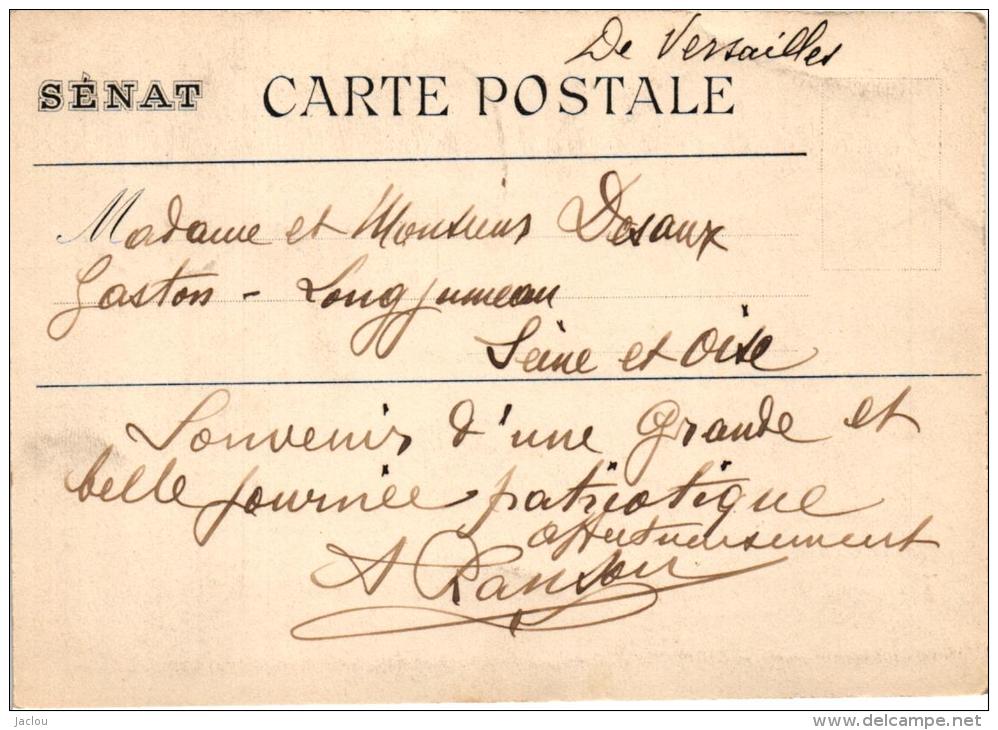 De Versailles
SÉNAT CARTE POSTALE
Madame et Monsieur Desaux
Gaston - Longjumeau
Seine et Oise
Souvenir d'une Grande et
belle journée patriotique
affectueusement
A Ranson
jaclou www.delcampe.net